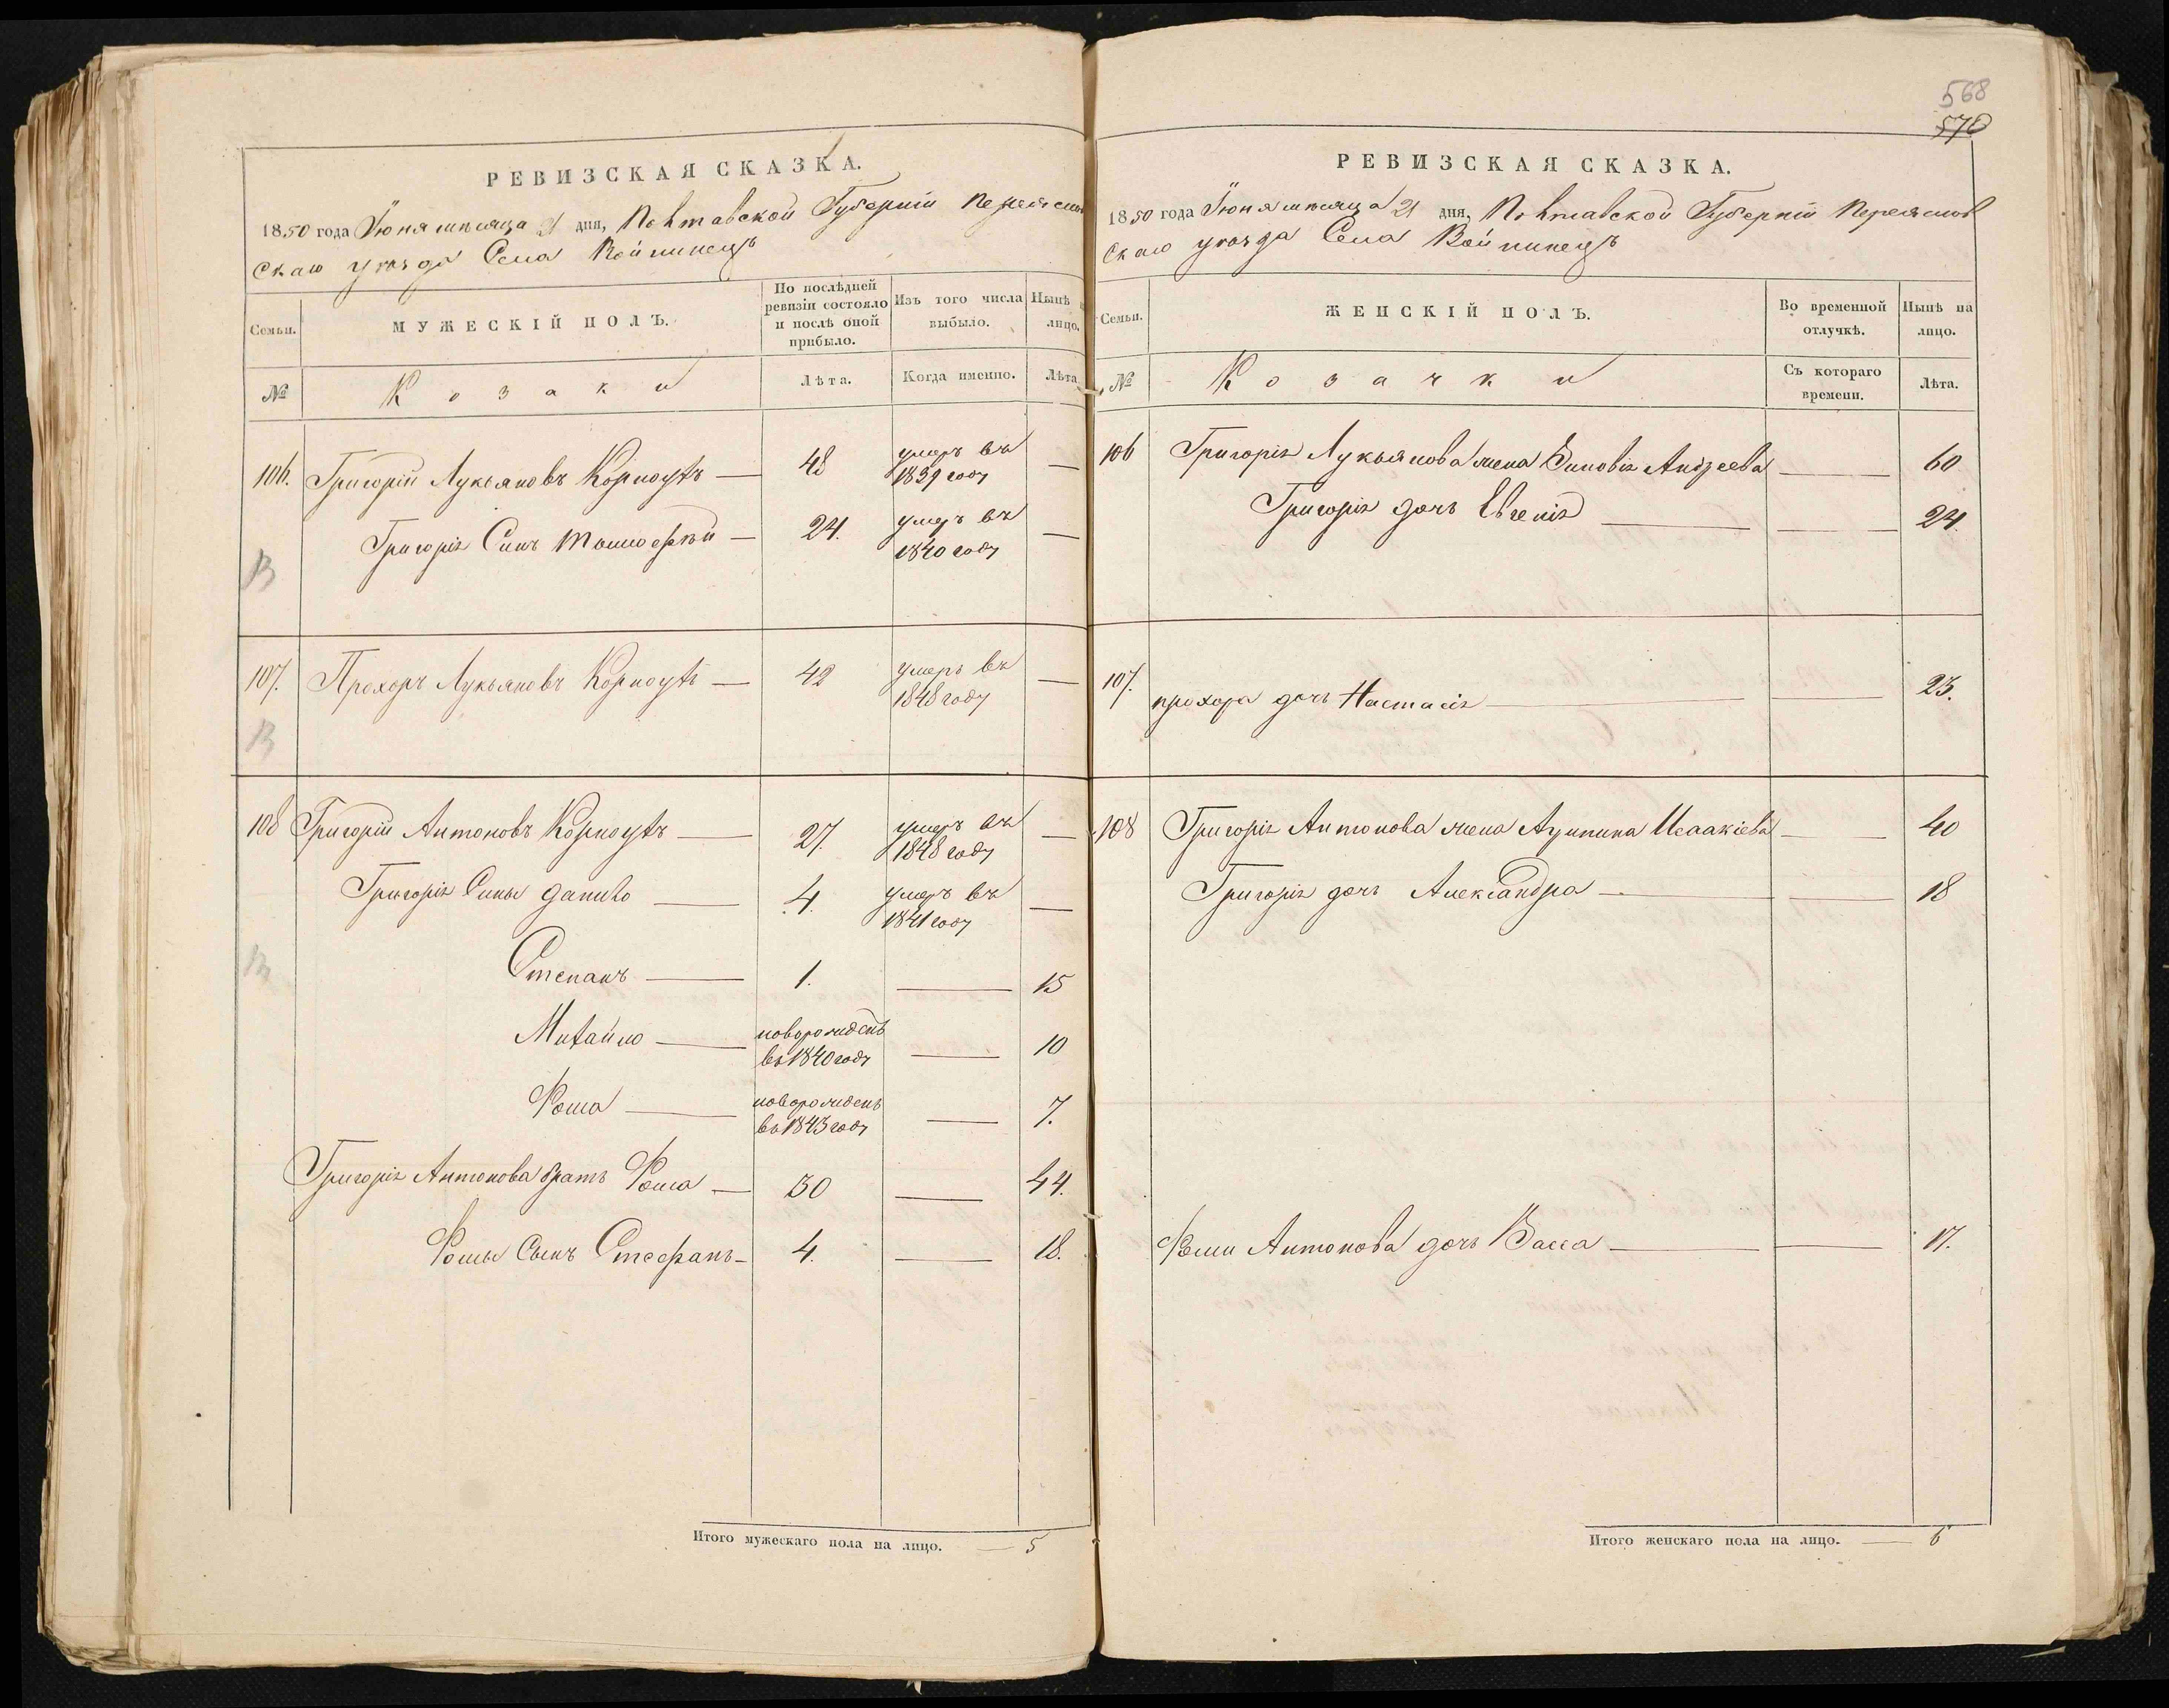 568
570
РЕВИЗСКАЯ СКАЗКА.
1850 года Іюня мѣсяца 21 дня, Полтавской Губерніи Переяслов
скаго уѣзда Села Войтинецъ
Семьи.
МУЖЕСКІЙ ПОЛЪ.
По послѣдней ревизіи состояло и послѣ оной прибыло.
Изъ того числа выбыло.
Нынѣ на лицо.
№
Козаки
Лѣта.
Когда именно.
Лѣта
106. Григорій Лукьяновъ Корноухъ — 48 умеръ въ 1839 году —
Григорія Синъ Тимофѣй — 24. умеръ въ 1840 году —
В
107. Прохоръ Лукьяновъ Корноухъ — 42 умеръ въ 1848 году —
В
108 Григорій Антоновъ Корноухъ — 27. умеръ въ 1848 году —
Григорія Сины Данило — 4. умеръ въ 1841 году —
В
Степанъ — 1. — 15
Михайло — новорожденъ въ 1840 году — 10
Фома — новорожденъ въ 1843 году — 7.
Григорія Антонова братъ Фома — 30 — 44.
Фомы Сынъ Стефанъ — 4. — 18.
Итого мужескаго пола на лицо. — 5
РЕВИЗСКАЯ СКАЗКА.
1850 года Іюня мѣсяца 21 дня, Полтавской Губерніи Переяслов
скаго уѣзда Села Войтинецъ
Семьи.
ЖЕНСКІЙ ПОЛЪ.
Во временной отлучкѣ.
Нынѣ на лицо.
№
Козачки
Съ котораго времени.
Лѣта.
106 Григорія Лукьянова жена Зиновія Андреева — 60
Григорія дочь Евгенія — — 24.
107. Прохора дочь Настасія — — 23.
108 Григорія Антонова жена Акулина Исаакіева — 40
Григорія дочь Александра — — 18
Фоми Антонова дочь Васса — — 17.
Итого женскаго пола на лицо. — 6